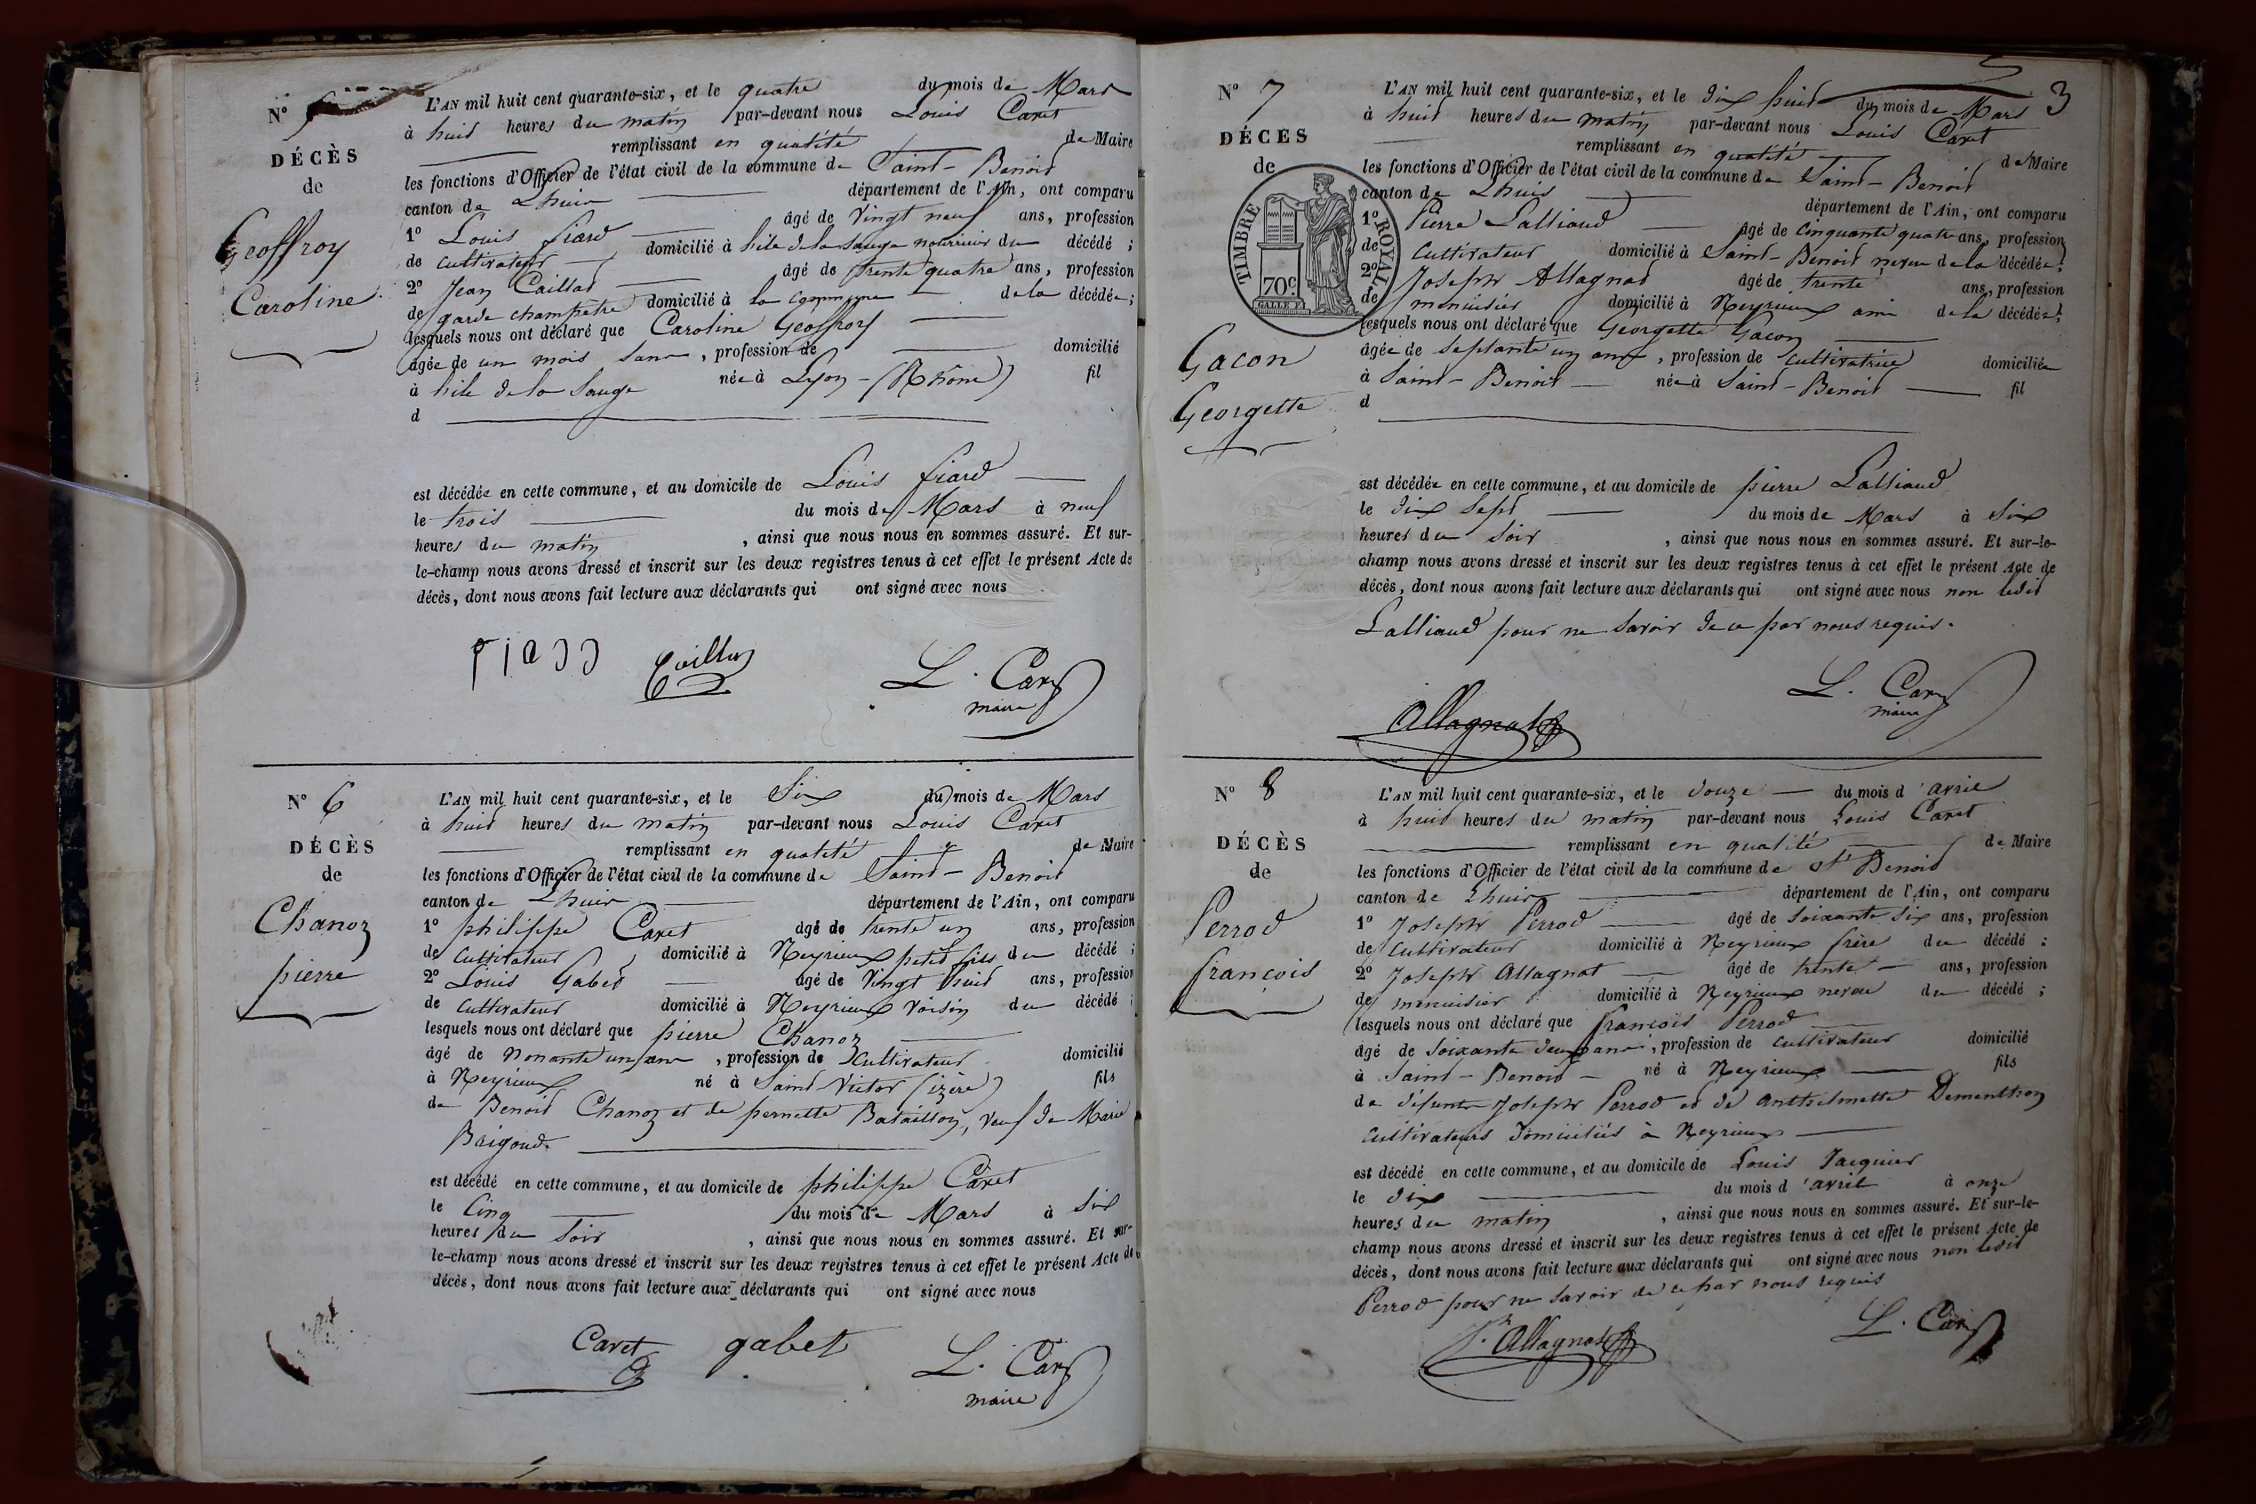 N° 5
DÉCÈS
de
Geoffroy
Caroline
L'AN mil huit cent quarante-six, et le quatre du mois de Mars
à huit heures du matin par-devant nous Louis Caret
remplissant en qualité de Maire
les fonctions d'Officier de l'état civil de la commune de Saint-Benoit
canton de Lhuis département de l'Ain, ont comparu
1° Louis fiard âgé de vingt neuf ans, profession
de cultivateur domicilié à hile de la Sauge nourricier du décédé ;
2° Jean Caillat âgé de trente quatre ans, profession
de garde champêtre domicilié à la commune de la décédée ;
lesquels nous ont déclaré que Caroline Geoffroy
âgée de un mois sans , profession de domicilié
à hile de la Sauge née à Lyon - (Rhône) fil
d
est décédée en cette commune, et au domicile de Louis fiard
le trois du mois de Mars à neuf
heures du matin , ainsi que nous nous en sommes assuré. Et sur-
le-champ nous avons dressé et inscrit sur les deux registres tenus à cet effet le présent Acte de
décès, dont nous avons fait lecture aux déclarants qui ont signé avec nous
Caillat L. Caret
maire
N° 6
DÉCÈS
de
Chanoz
pierre
L'AN mil huit cent quarante-six, et le Six du mois de Mars
à huit heures du matin par-devant nous Louis Caret
remplissant en qualité de Maire
les fonctions d'Officier de l'état civil de la commune de Saint-Benoit
canton de Lhuis département de l'Ain, ont comparu
1° philippe Caret âgé de trente un ans, profession
de cultivateur domicilié à Neyrieux petit fils du décédé ;
2° Louis Gabet âgé de vingt huit ans, profession
de cultivateur domicilié à Neyrieux voisin du décédé ;
lesquels nous ont déclaré que pierre Chanoz
âgé de nonante un ans , profession de cultivateur domicilié
à Neyrieux né à Saint-Victor (izère) fils
de Benoit Chanoz et de pernette Bataillon, veuf de Marie
Brigoud
est décédé en cette commune, et au domicile de philippe Caret
le Cinq du mois de Mars à six
heures du soir , ainsi que nous nous en sommes assuré. Et sur-
le-champ nous avons dressé et inscrit sur les deux registres tenus à cet effet le présent Acte de
décès, dont nous avons fait lecture aux déclarants qui ont signé avec nous
Caret gabet L. Caret
maire
3
N° 7
DÉCÈS
de
TIMBRE ROYAL
70c
GALLE F.
Gacon
Georgette
L'AN mil huit cent quarante-six, et le dix huit du mois de Mars
à huit heures du matin par-devant nous Louis Caret
remplissant en qualité de Maire
les fonctions d'Officier de l'état civil de la commune de Saint-Benoit
canton de Lhuis département de l'Ain, ont comparu
1° Pierre Lalliaud âgé de cinquante quatre ans, profession
de cultivateur domicilié à Saint-Benoit neveu de la décédée ;
2° Joseph Allagnat âgé de trente ans, profession
de menuisier domicilié à Neyrieux ami de la décédée ;
lesquels nous ont déclaré que Georgette Gacon
âgée de septante un ans , profession de cultivatrice domiciliée
à Saint-Benoit née à Saint-Benoit fil
d
est décédée en cette commune, et au domicile de pierre Lalliaud
le dix sept du mois de Mars à six
heures du soir , ainsi que nous nous en sommes assuré. Et sur-le-
champ nous avons dressé et inscrit sur les deux registres tenus à cet effet le présent Acte de
décès, dont nous avons fait lecture aux déclarants qui ont signé avec nous non ledit
Lalliaud pour ne savoir de ce par nous requis.
Allagnat L. Caret
maire
N° 8
DÉCÈS
de
Perrod
françois
L'AN mil huit cent quarante-six, et le douze du mois d'avril
à huit heures du matin par-devant nous Louis Caret
remplissant en qualité de Maire
les fonctions d'Officier de l'état civil de la commune de St Benoit
canton de Lhuis département de l'Ain, ont comparu
1° Joseph Perrod âgé de soixante six ans, profession
de cultivateur domicilié à Neyrieux frère du décédé ;
2° Joseph Allagnat âgé de trente ans, profession
de menuisier domicilié à Neyrieux neveu du décédé ;
lesquels nous ont déclaré que françois Perrod
âgé de soixante deux ans , profession de cultivateur domicilié
à Saint-Benoit né à Neyrieux fils
de défunts Joseph Perrod et de anthelmette Dementhon
cultivateurs domiciliés à Neyrieux
est décédé en cette commune, et au domicile de Louis Jacquier
le dix du mois d'avril à onze
heures du matin , ainsi que nous nous en sommes assuré. Et sur-le-
champ nous avons dressé et inscrit sur les deux registres tenus à cet effet le présent Acte de
décès, dont nous avons fait lecture aux déclarants qui ont signé avec nous non ledit
Perrod pour ne savoir de ce par nous requis
Jh Allagnat L. Caret